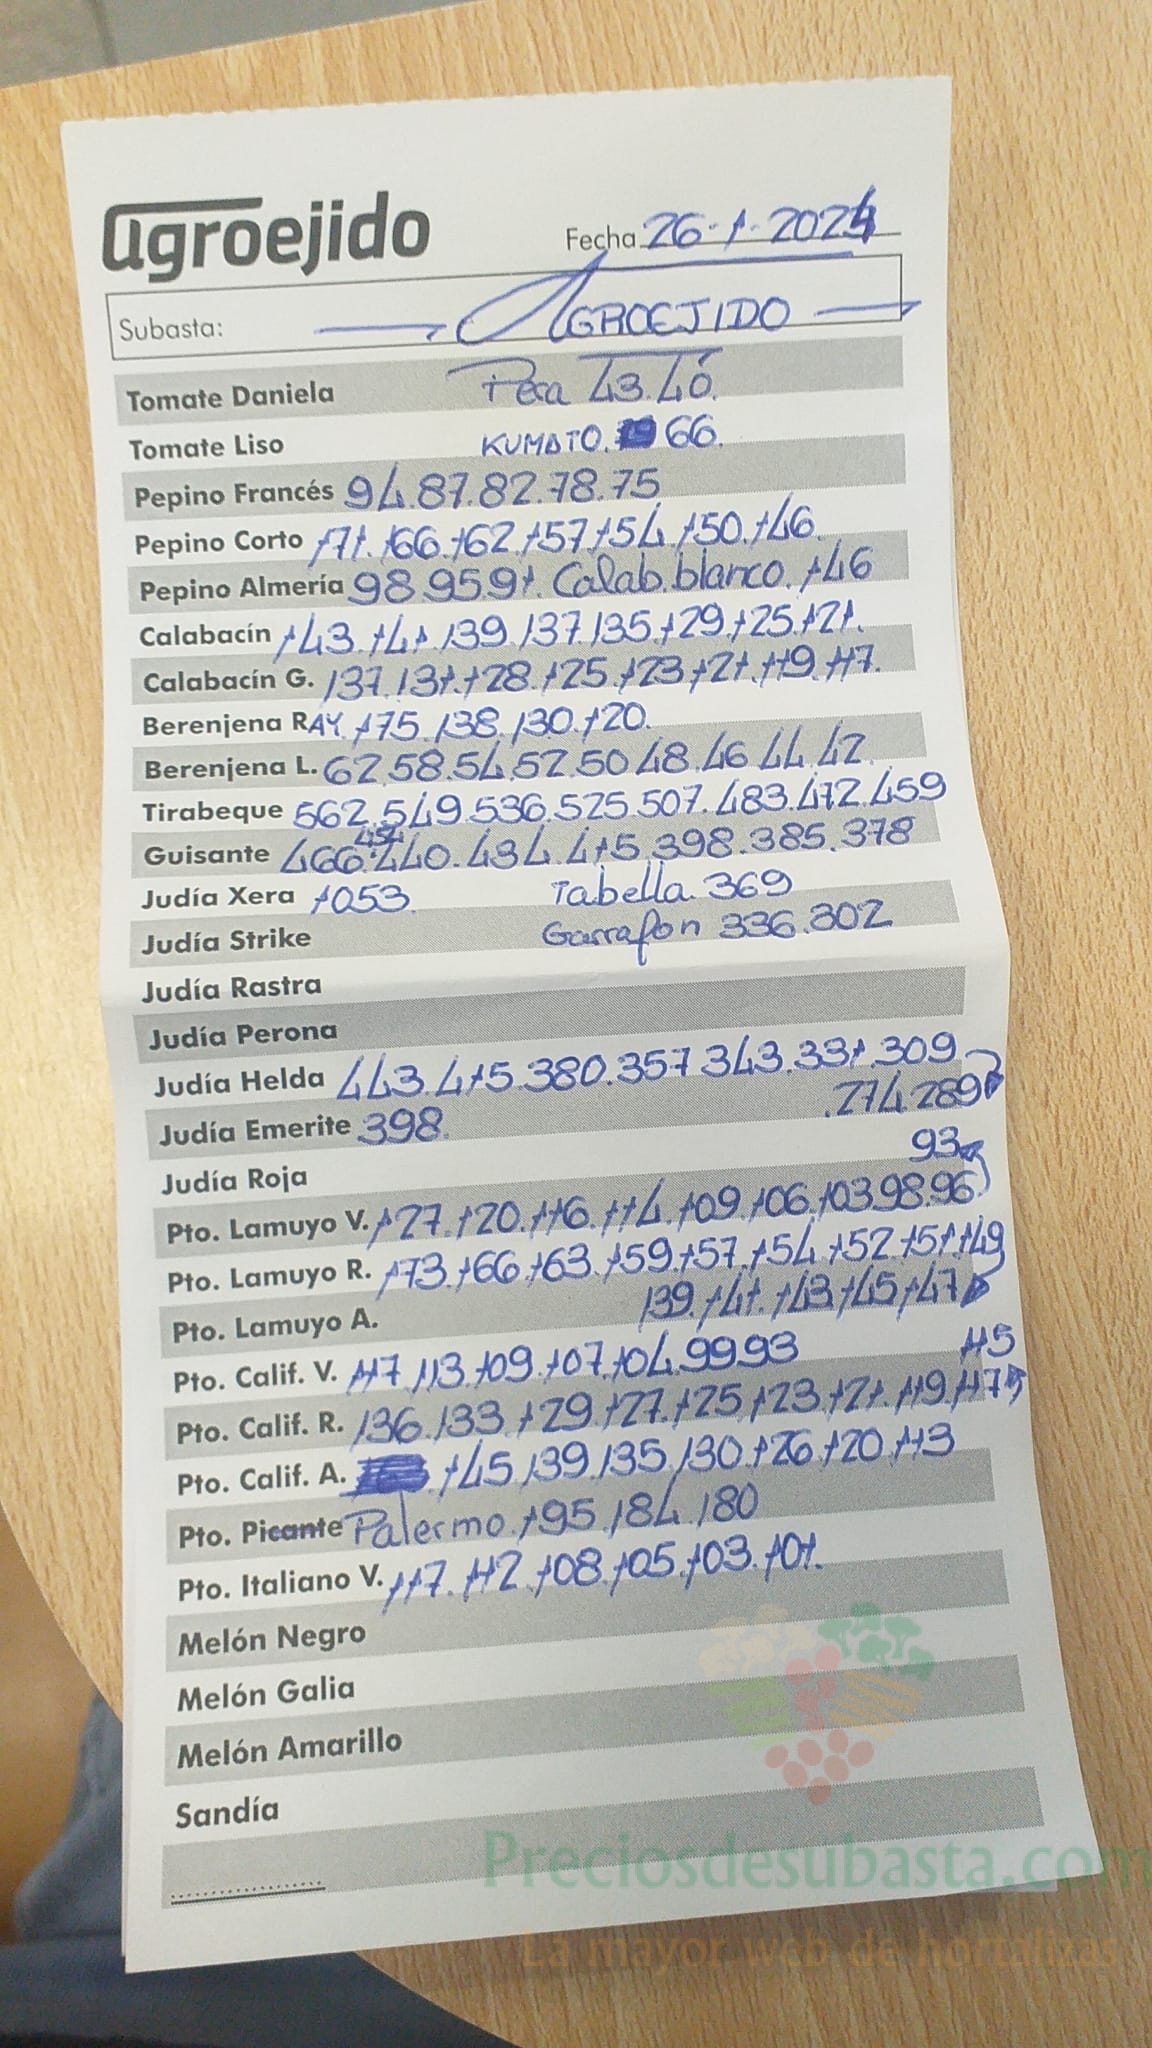 agroejido
Fecha 26-1-2024
Subasta: AGROEJIDO
Tomate Daniela Pera 43.40.
Tomate Liso KUMATO. 66.
Pepino Francés 94.87.82.78.75
Pepino Corto 171.166.162.157.154.150.146.
Pepino Almería 98.95.91. Calab.blanco.146
Calabacín 143.141.139.137.135.129.125.121.
Calabacín G. 137.131.128.125.123.121.119.117.
Berenjena RAY. 175.138.130.120.
Berenjena L. 62.58.54.52.50.48.46.44.42.
Tirabeque 562.549.536.525.507.483.472.459
454
Guisante 466.440.434.415.398.385.378
Judía Xera 1053. Tabella.369
Judía Strike Garrafon 336.302
Judía Rastra
Judía Perona
Judía Helda 443.415.380.357.343.331.309
Judía Emerite 398. .274.289
Judía Roja 93
Pto. Lamuyo V. 127.120.116.114.109.106.103.98.96.
Pto. Lamuyo R. 173.166.163.159.157.154.152.151.149
Pto. Lamuyo A. 139.141.143.145.147
Pto. Calif. V. 117.113.109.107.104.99.93 115
Pto. Calif. R. 136.133.129.127.125.123.121.119.117
Pto. Calif. A. 145.139.135.130.126.120.113
Pto. Picante Palermo.195.184.180
Pto. Italiano V. 117.112.108.105.103.101.
Melón Negro
Melón Galia
Melón Amarillo
Sandía
Preciosdesubasta.com
La mayor web de hortalizas